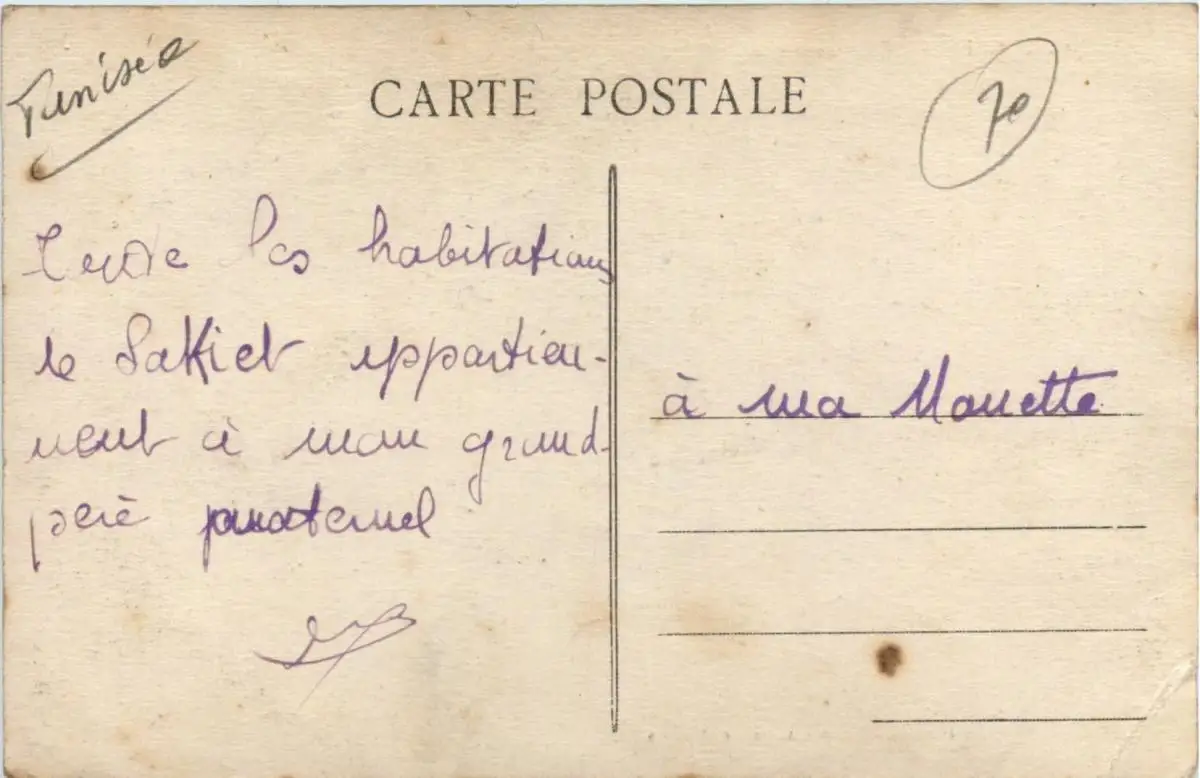 Tunisie
CARTE POSTALE
7e
les habitations
le Sakiet appartien-
nent à mon grand-
père paternel
à ma Manette